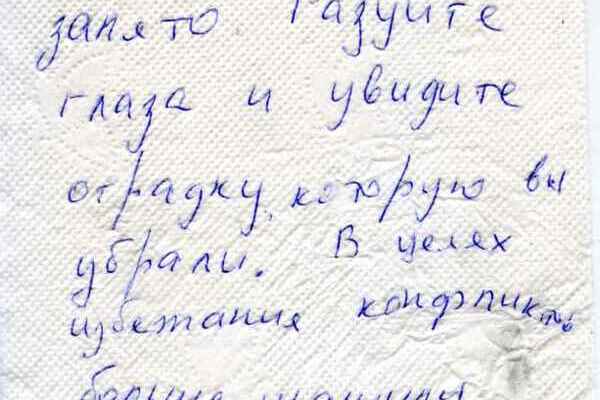 занято Разуйте
глаза и увидите
оградку, которую вы
убрали. В целях
избежания конфликтов
больше